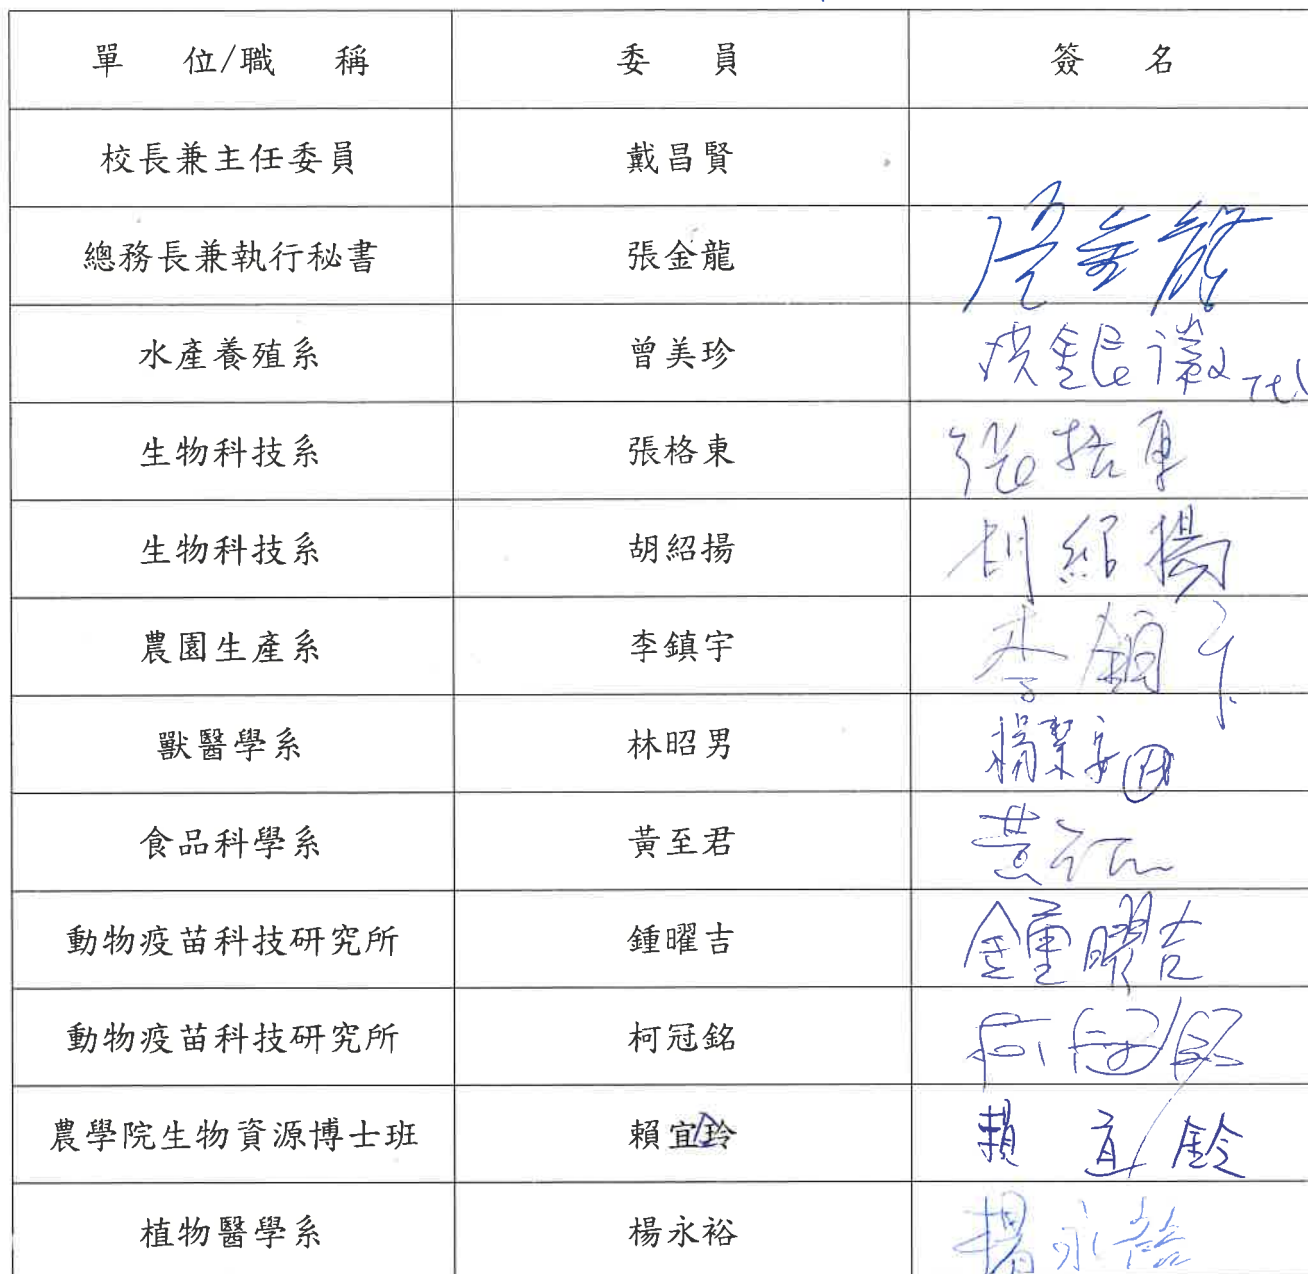 單 位/職 稱 委 員 簽 名
校長兼主任委員 戴昌賢
總務長兼執行秘書 張金龍 張金龍
水產養殖系 曾美珍
生物科技系 張格東 張格東
生物科技系 胡紹揚 胡紹揚
農園生產系 李鎮宇 李鎮宇
獸醫學系 林昭男
食品科學系 黃至君 黃
動物疫苗科技研究所 鍾曜吉 鍾曜吉
動物疫苗科技研究所 柯冠銘 柯冠銘
農學院生物資源博士班 賴宜玲 賴宜鈴
植物醫學系 楊永裕 楊永裕